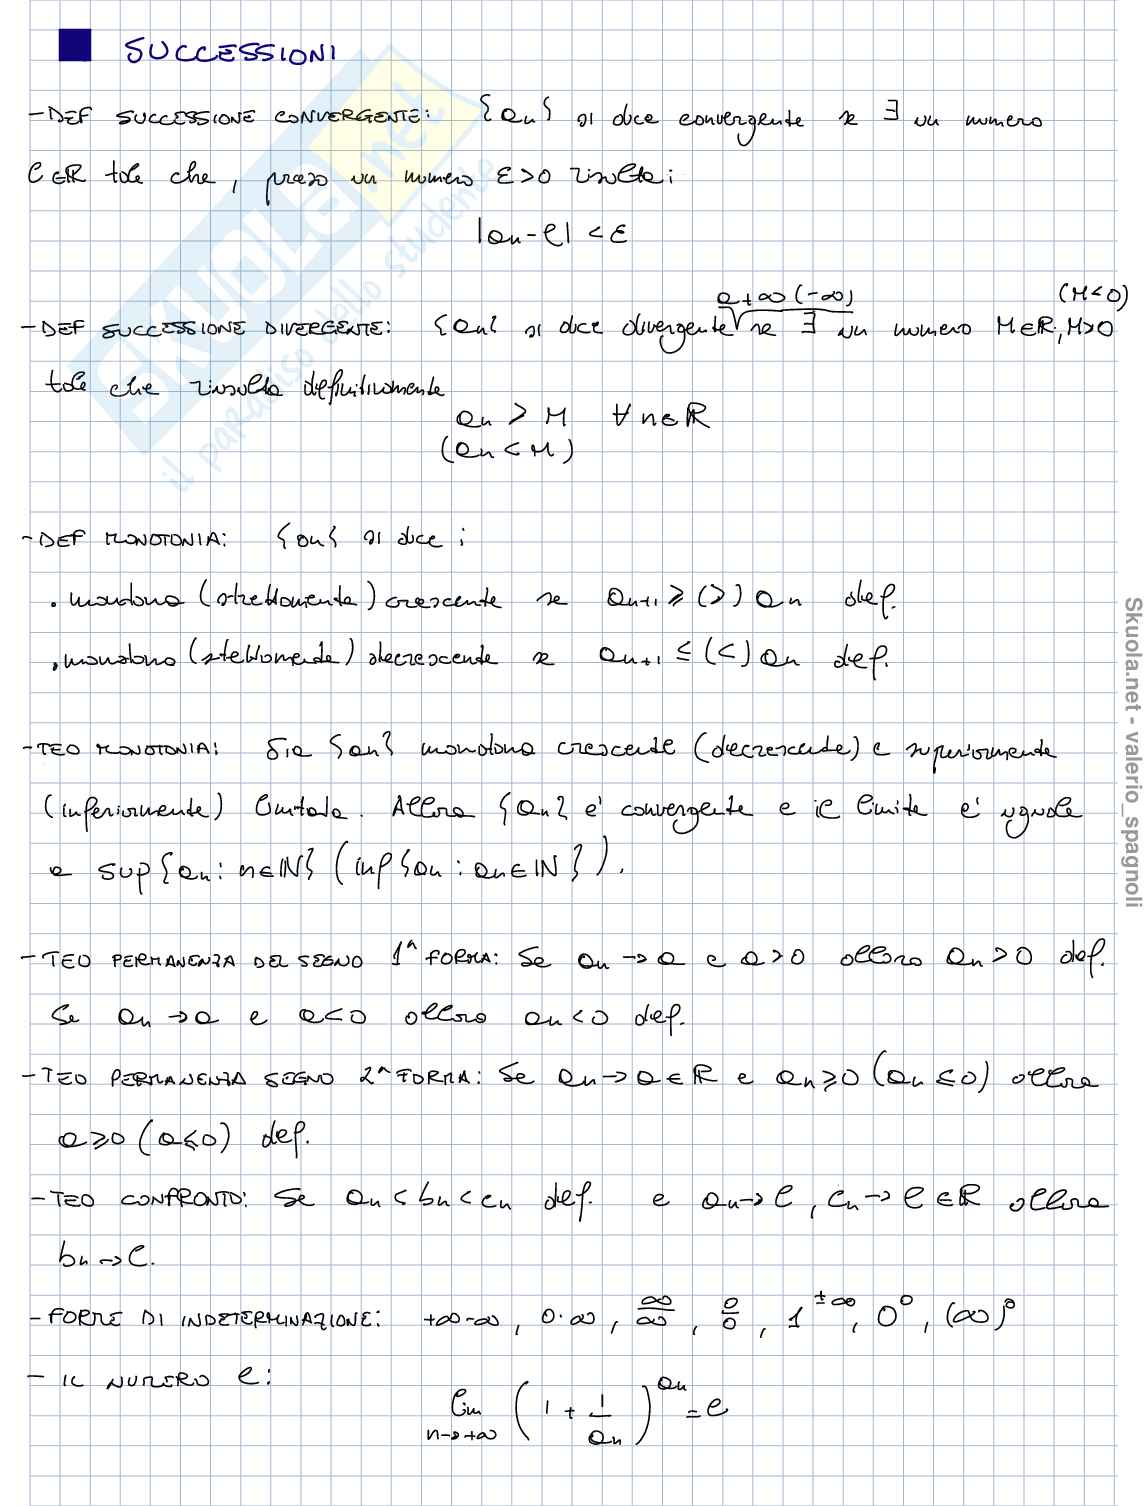 SUCCESSIONI
- DEF SUCCESSIONE CONVERGENTE: {an} si dice convergente se ∃ un numero
l∈ℝ tale che, preso un numero ε>0 risulta:
|an-l| < ε
a +∞ (-∞) (M<0)
- DEF SUCCESSIONE DIVERGENTE: {an} si dice divergente se ∃ un numero M∈ℝ, M>0
tale che risulta definitivamente
an > M ∀n∈ℝ
(an < M)
- DEF MONOTONIA: {an} si dice:
. monotona (strettamente) crescente se an+1 ≥ (>) an def.
. monotona (stettamente) decrescente se an+1 ≤ (<) an def.
- TEO MONOTONIA: Sia {an} monotona crescente (decrescente) e superiormente
(inferiormente) limitata. Allora {an} e' convergente e il limite e' uguale
a sup{an: n∈IN} (inf{an: an∈IN}).
- TEO PERMANENZA DEL SEGNO 1^ FORMA: Se an → a e a>0 allora an>0 def.
Se an → a e a<0 allora an<0 def.
- TEO PERMANENZA SEGNO 2^ FORMA: Se an → a∈ℝ e an≥0 (an≤0) allora
a≥0 (a≤0) def.
- TEO CONFRONTO: Se an < bn < cn def. e an → l, cn → l ∈ℝ allora
bn → l.
- FORME DI INDETERMINAZIONE: +∞-∞, 0·∞, ∞/∞, 0/0, 1^±∞, 0^0, (∞)^0
- IL NUMERO e:
lim n→+∞ (1 + 1/an)^an = e
SKUOLA.net
il paradiso dello studente
Skuola.net - valerio_spagnoli